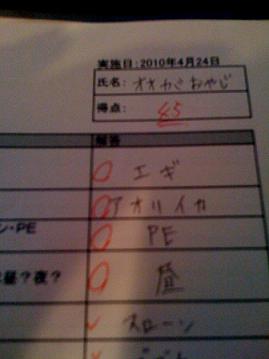 実施日:2010年4月24日
氏名: オオカミおやじ
得点: 85
解答
エギ
アオリイカ
ン・PE PE
昼?夜? 昼
スローン